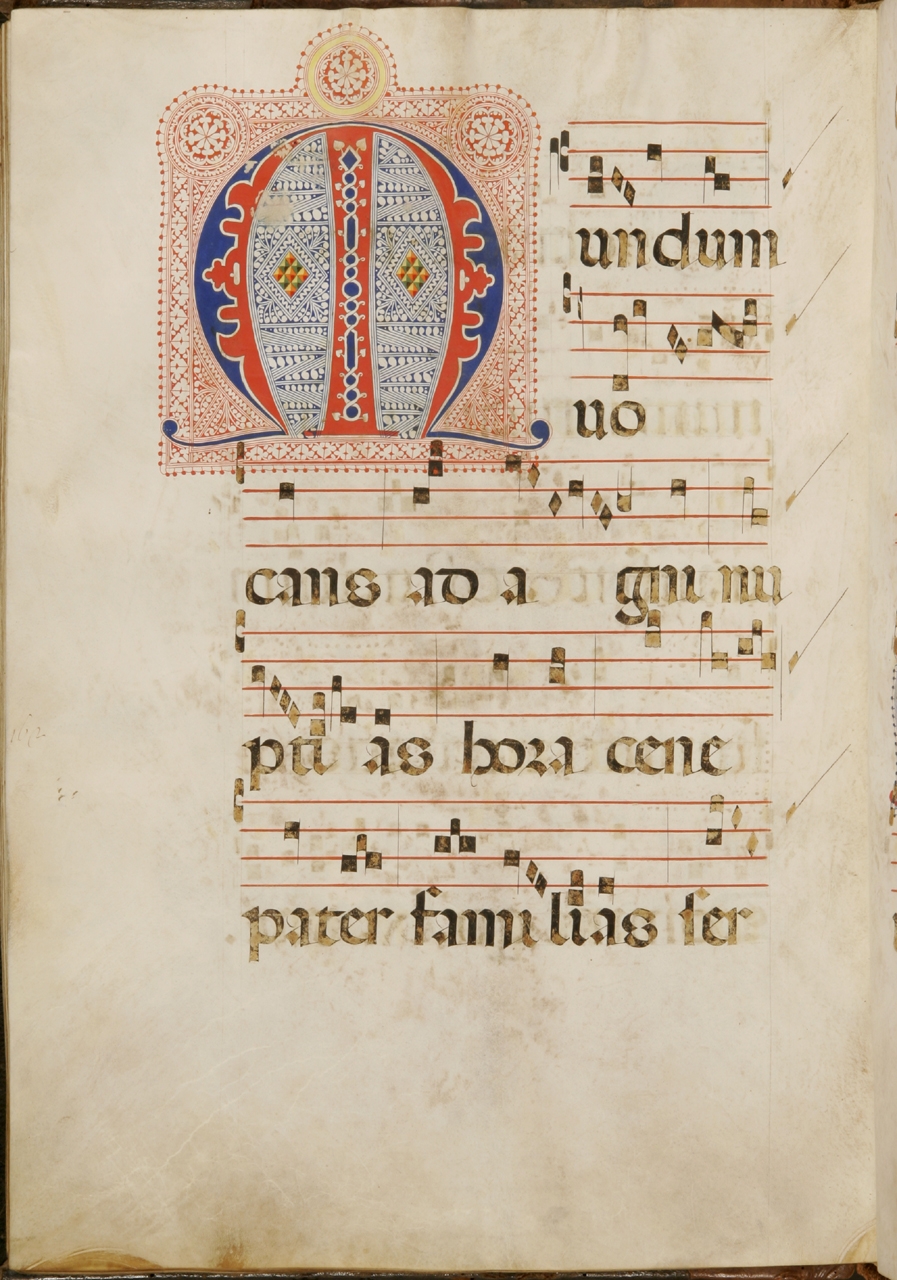 Mundum
uo
cans ad a gni nu
pti as hora cene
pater fami lias ser